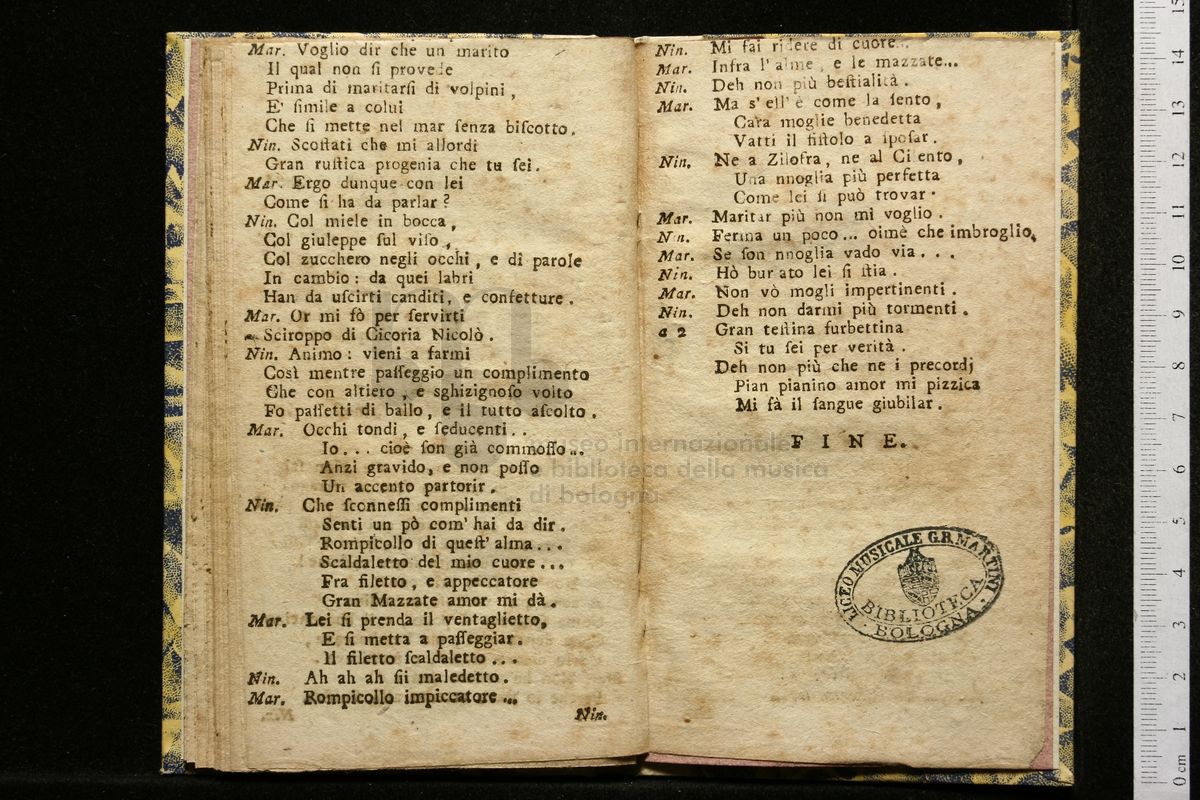 Mar. Voglio dir che un marito
Il qual non ſi provede
Prima di maritarſi di volpini,
E' ſimile a colui
Che ſi mette nel mar ſenza biſcotto.
Nin. Scoſtati che mi allordi
Gran ruſtica progenia che tu ſei.
Mar. Ergo dunque con lei
Come ſi ha da parlar?
Nin. Col miele in bocca,
Col giuleppe ſul viſo,
Col zucchero negli occhi, e di parole
In cambio: da quei labri
Han da uſcirti canditi, e confetture.
Mar. Or mi fò per ſervirti
Sciroppo di Cicoria Nicolò.
Nin. Animo: vieni a farmi
Così mentre paſſeggio un complimento
Che con altiero, e sghizignoſo volto
Fo paſſetti di ballo, e il tutto aſcolto.
Mar. Occhi tondi, e ſeducenti..
Io... cioè ſon già commoſſo...
Anzi gravido, e non poſſo
Un accento partorir.
Nin. Che ſconneſſi complimenti
Senti un pò com' hai da dir.
Rompicollo di queſt' alma...
Scaldaletto del mio cuore...
Fra filetto, e appeccatore
Gran Mazzate amor mi dà.
Mar. Lei ſi prenda il ventaglietto,
E ſi metta a paſſeggiar.
Il filetto ſcaldaletto...
Nin. Ah ah ah ſii maledetto.
Mar. Rompicollo impiccatore...
Nin.
Nin. Mi fai ridere di cuore...
Mar. Infra l' alme, e le mazzate...
Nin. Deh non più beſtialità.
Mar. Ma s' ell' è come la ſento,
Cara moglie benedetta
Vatti il fiſtolo a ſpoſar.
Nin. Ne a Zilofra, ne al Ci ento,
Una nnoglia più perfetta
Come lei ſi può trovar.
Mar. Maritar più non mi voglio.
Nin. Ferma un poco... oimè che imbroglio,
Mar. Se ſon nnoglia vado via...
Nin. Hò bur ato lei ſi ſtia.
Mar. Non vò mogli impertinenti.
Nin. Deh non darmi più tormenti.
a 2 Gran teſtina furbettina
Si tu ſei per verità.
Deh non più che ne i precordj
Pian pianino amor mi pizzica
Mi fà il ſangue giubilar.
FINE.
museo internazionale
e biblioteca della musica
di bologna
LICEO MUSICALE G.B. MARTINI
BIBLIOTECA
· BOLOGNA ·
0 cm 1 2 3 4 5 6 7 8 9 10 11 12 13 14 15